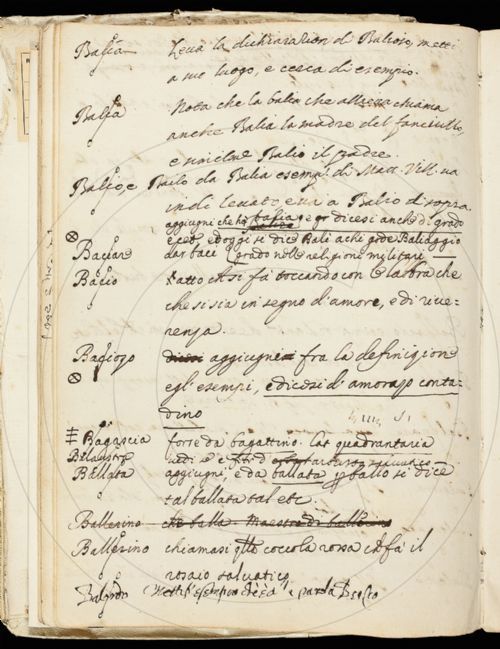 Balia Leva la dichiarazion di Balioso, metti
a suo luogo, e cerca di esempio.
Balia Nota che la balia che allieva chiama
anche Balia la madre del fanciullo,
e Balio il padre.
Balio, e Bailo da Balia esemp. di Matt. Vill. va
indi levato, e va a Balio di sopra
aggiugni che ha balia, e dicesi anche di grado
e oggi si dice Balì a chi gode Baliaggio
Baciare dar baci grado nelle religioni militari
Bacio Latto che si fa toccando con le labbra che
che si sia in segno d'amore, e di rive=
renza.
Bagiozo aggiugni fra la definizione
e gl'esempi, e dicesi d'amorazo conta=
dino
Bagascia forse da bagattino. Lat. quadrantaria
Balaustro
Ballata aggiugni, e da ballata ballo si dice
tal ballata tal etc.
Ballerino che balla. Maestro di
Ballerino chiamasi coccola rossa che fa il
rosaio salvatico